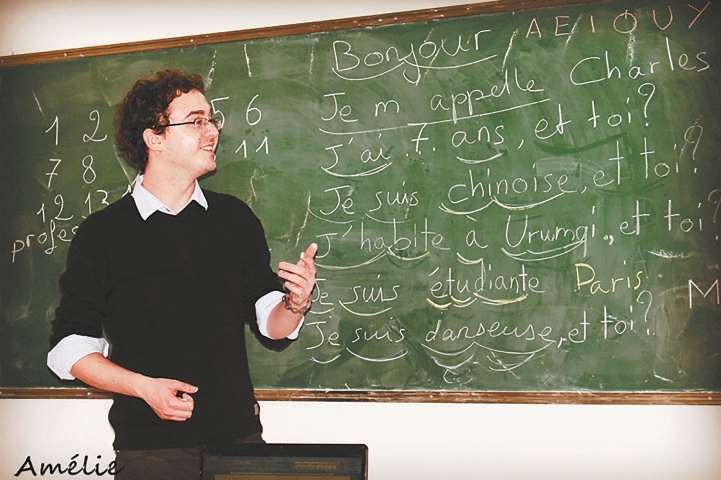 A E I O U Y
Bonjour
Je m appelle Charles
J'ai 7. ans, et toi?
Je suis chinoise, et toi?
J'habite à Urumqi, et toi?
Je suis étudiante Paris
Je suis danseuse, et toi?
1 2 5 6
7 8 11
12 13
profes
M
Amélie